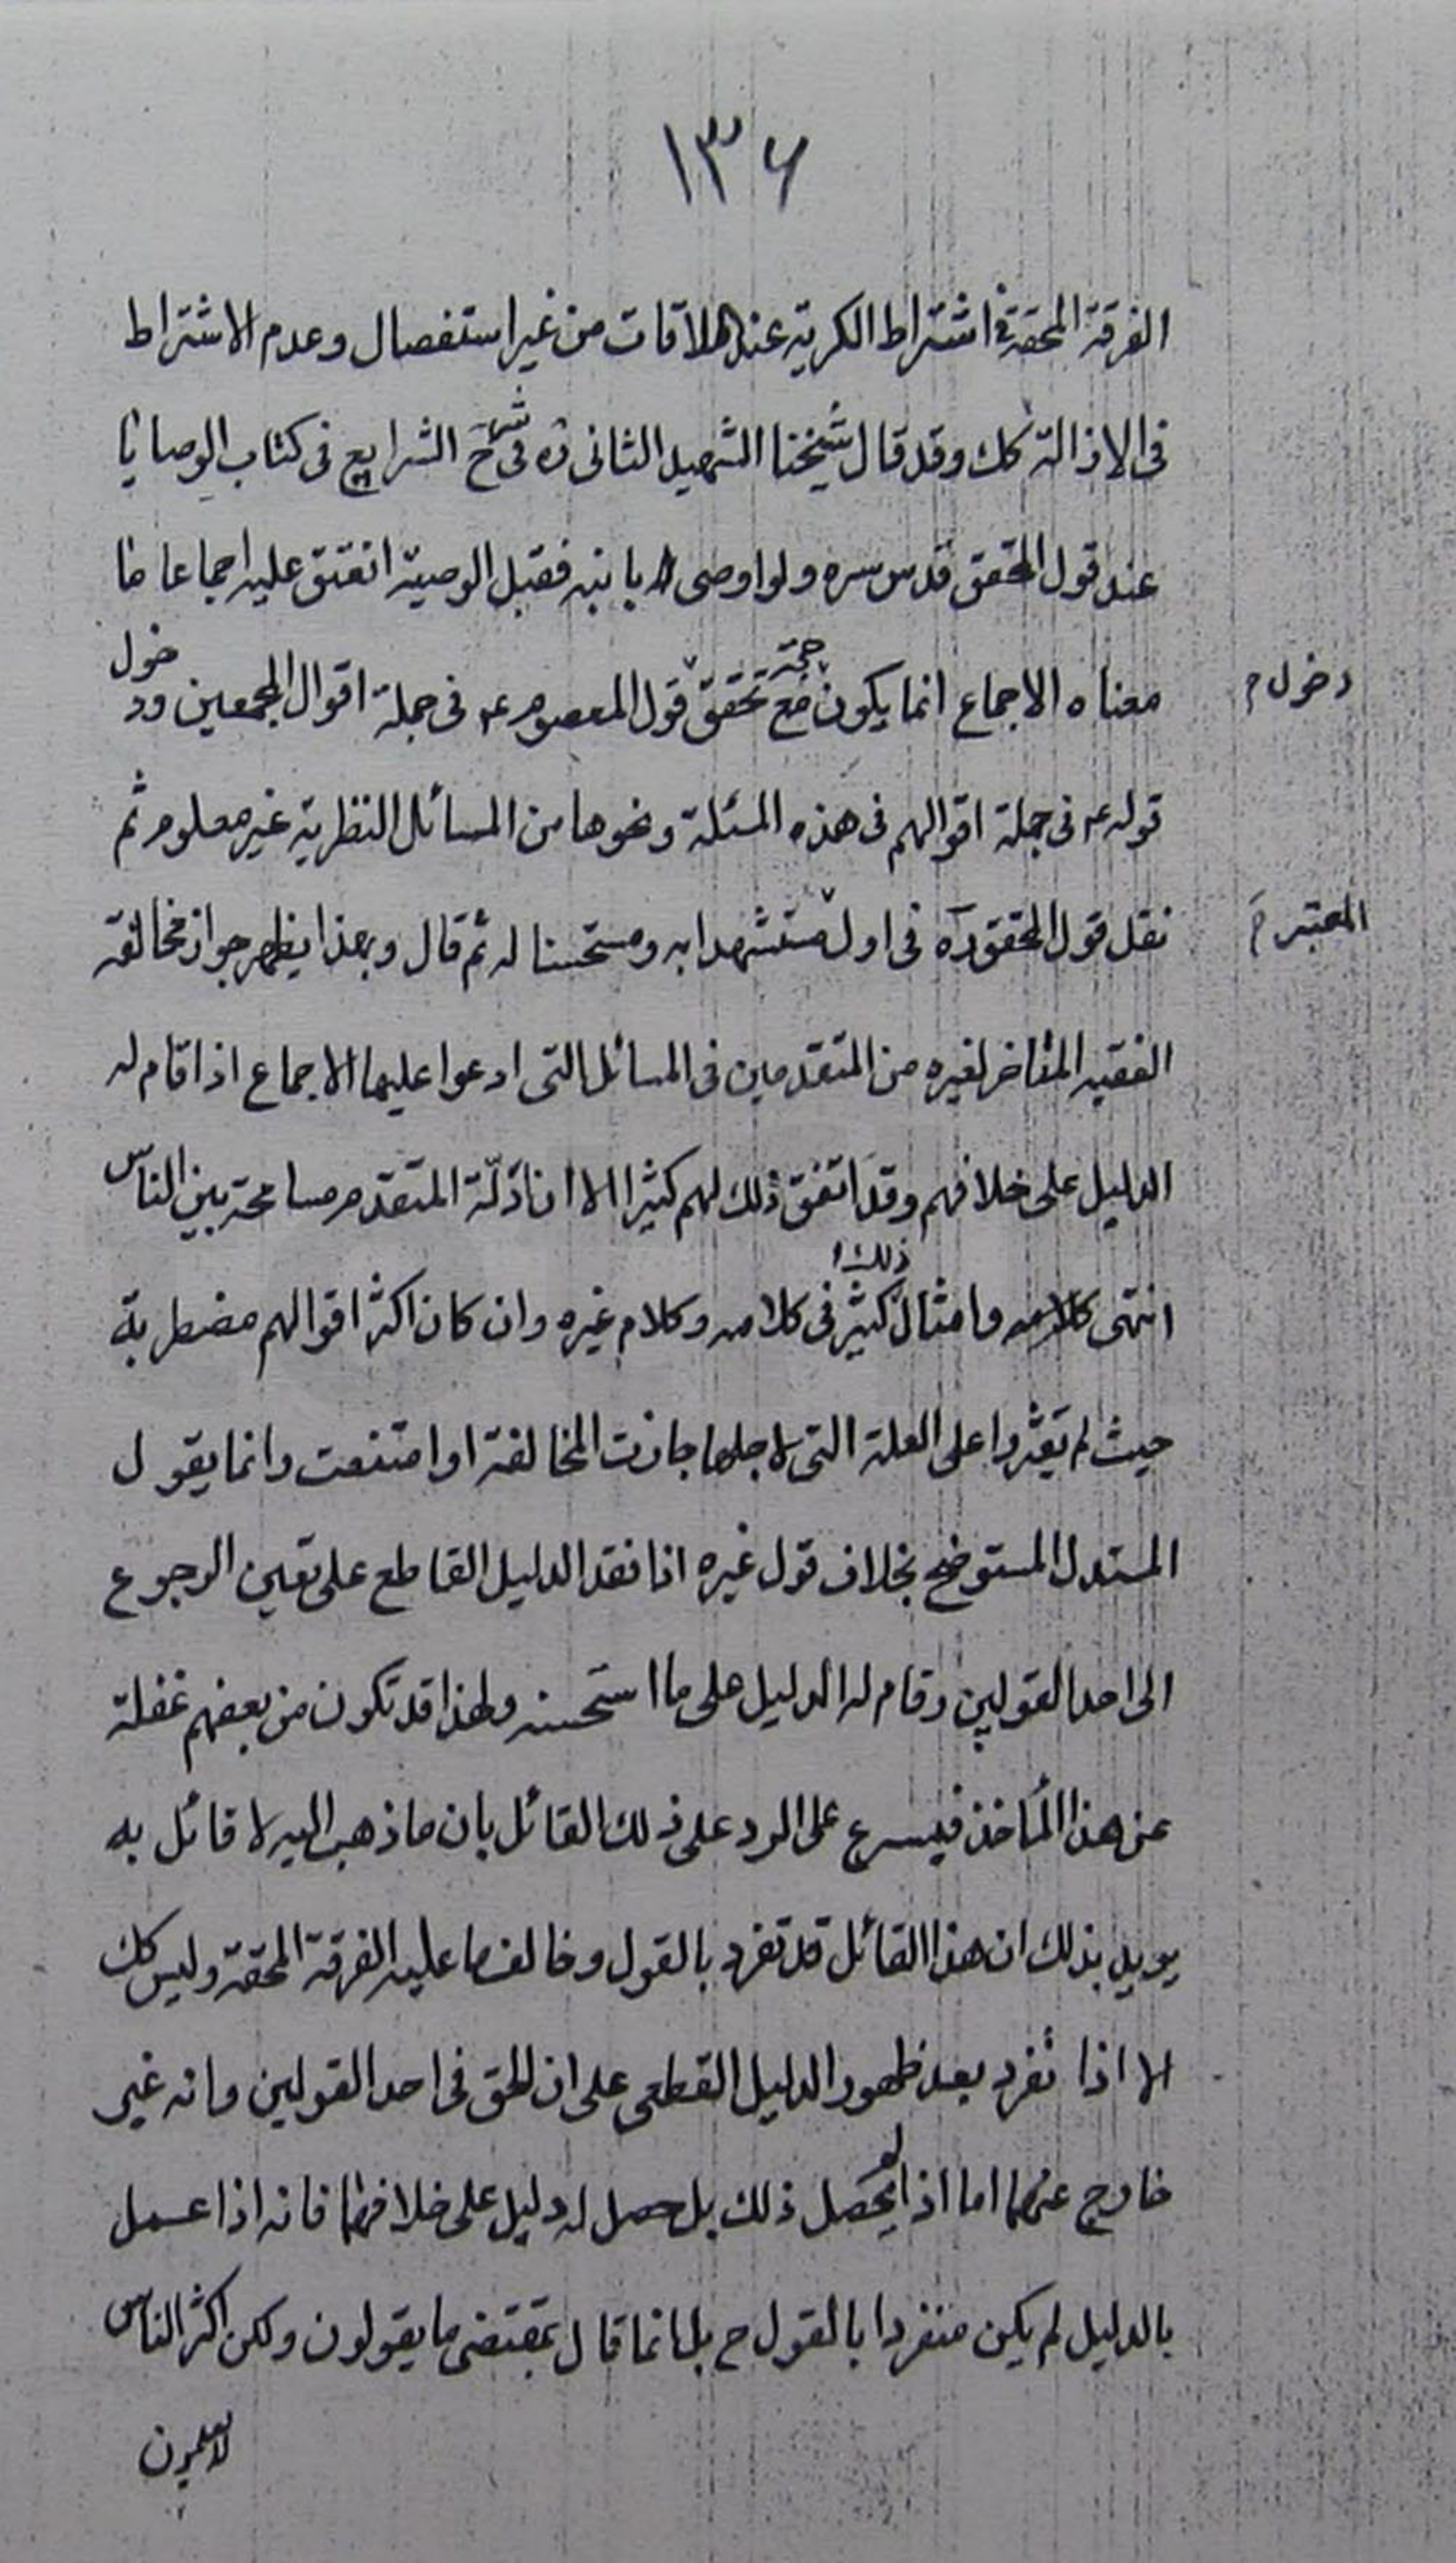 ١٣۶
الفرقة المحقة فى اشتراط الكرية عند الملاقات من غير استفصال وعدم الاشتراط
فى الازالة كك وقد قال شيخنا الشهيد الثانى ره فى شرح الشرايع فى كتاب الوصايا
عند قول المحقق قدس سره ولو اوصى له بابنه فقبل الوصية انعتق عليه اجماعا ما
معناه الاجماع انما يكون حجة مع تحقق قول المعصوم ع فى جملة اقوال المجمعين ودخول
دخول م
قوله ع فى جملة اقوالهم فى هذه المسئلة ونحوها من المسائل النظرية غير معلوم ثم
نقل قول المحقق ره فى اول مستشهدا به ومستحسنا له ثم قال وبهذا يظهر جواز مخالفة
المعتبر م
الفقيه المتاخر لغيره من المتقدمين فى المسائل التى ادعوا عليها الاجماع اذا قام له
الدليل على خلافهم وقد اتفق ذلك لهم كثيرا الا ان زلّة المتقدم مسامحة بين الناس
انتهى كلامه وامثال ذلك كثير فى كلامه وكلام غيره وان كان اكثر اقوالهم مضطربة
حيث لم يعثروا على العلة التى لاجلها جازت المخالفة او امتنعت وانما يقول
المستدل المستوضح بخلاف قول غيره اذا فقد الدليل القاطع على تعين الرجوع
الى احد القولين وقام له الدليل على ما استحسنه ولهذا قد تكون من بعضهم غفلة
عن هذا المأخذ فيسرع على الرد على ذلك القائل بان ما ذهب اليه لا قائل به
يريد بذلك ان هذا القائل قد تفرد بالقول وخالف ما عليه الفرقة المحقة وليس كك
الا اذا تفرد بعد ظهور الدليل القطعى على ان الحق فى احد القولين وانه غير
خارج عنهما اما اذا لم يحصل ذلك بل حصل له دليل على خلافهما فانه اذا عمل
بالدليل لم يكن منفردا بالقول ح بل انما قال بمقتضى ما يقولون ولكن اكثر الناس
لا يعلمون